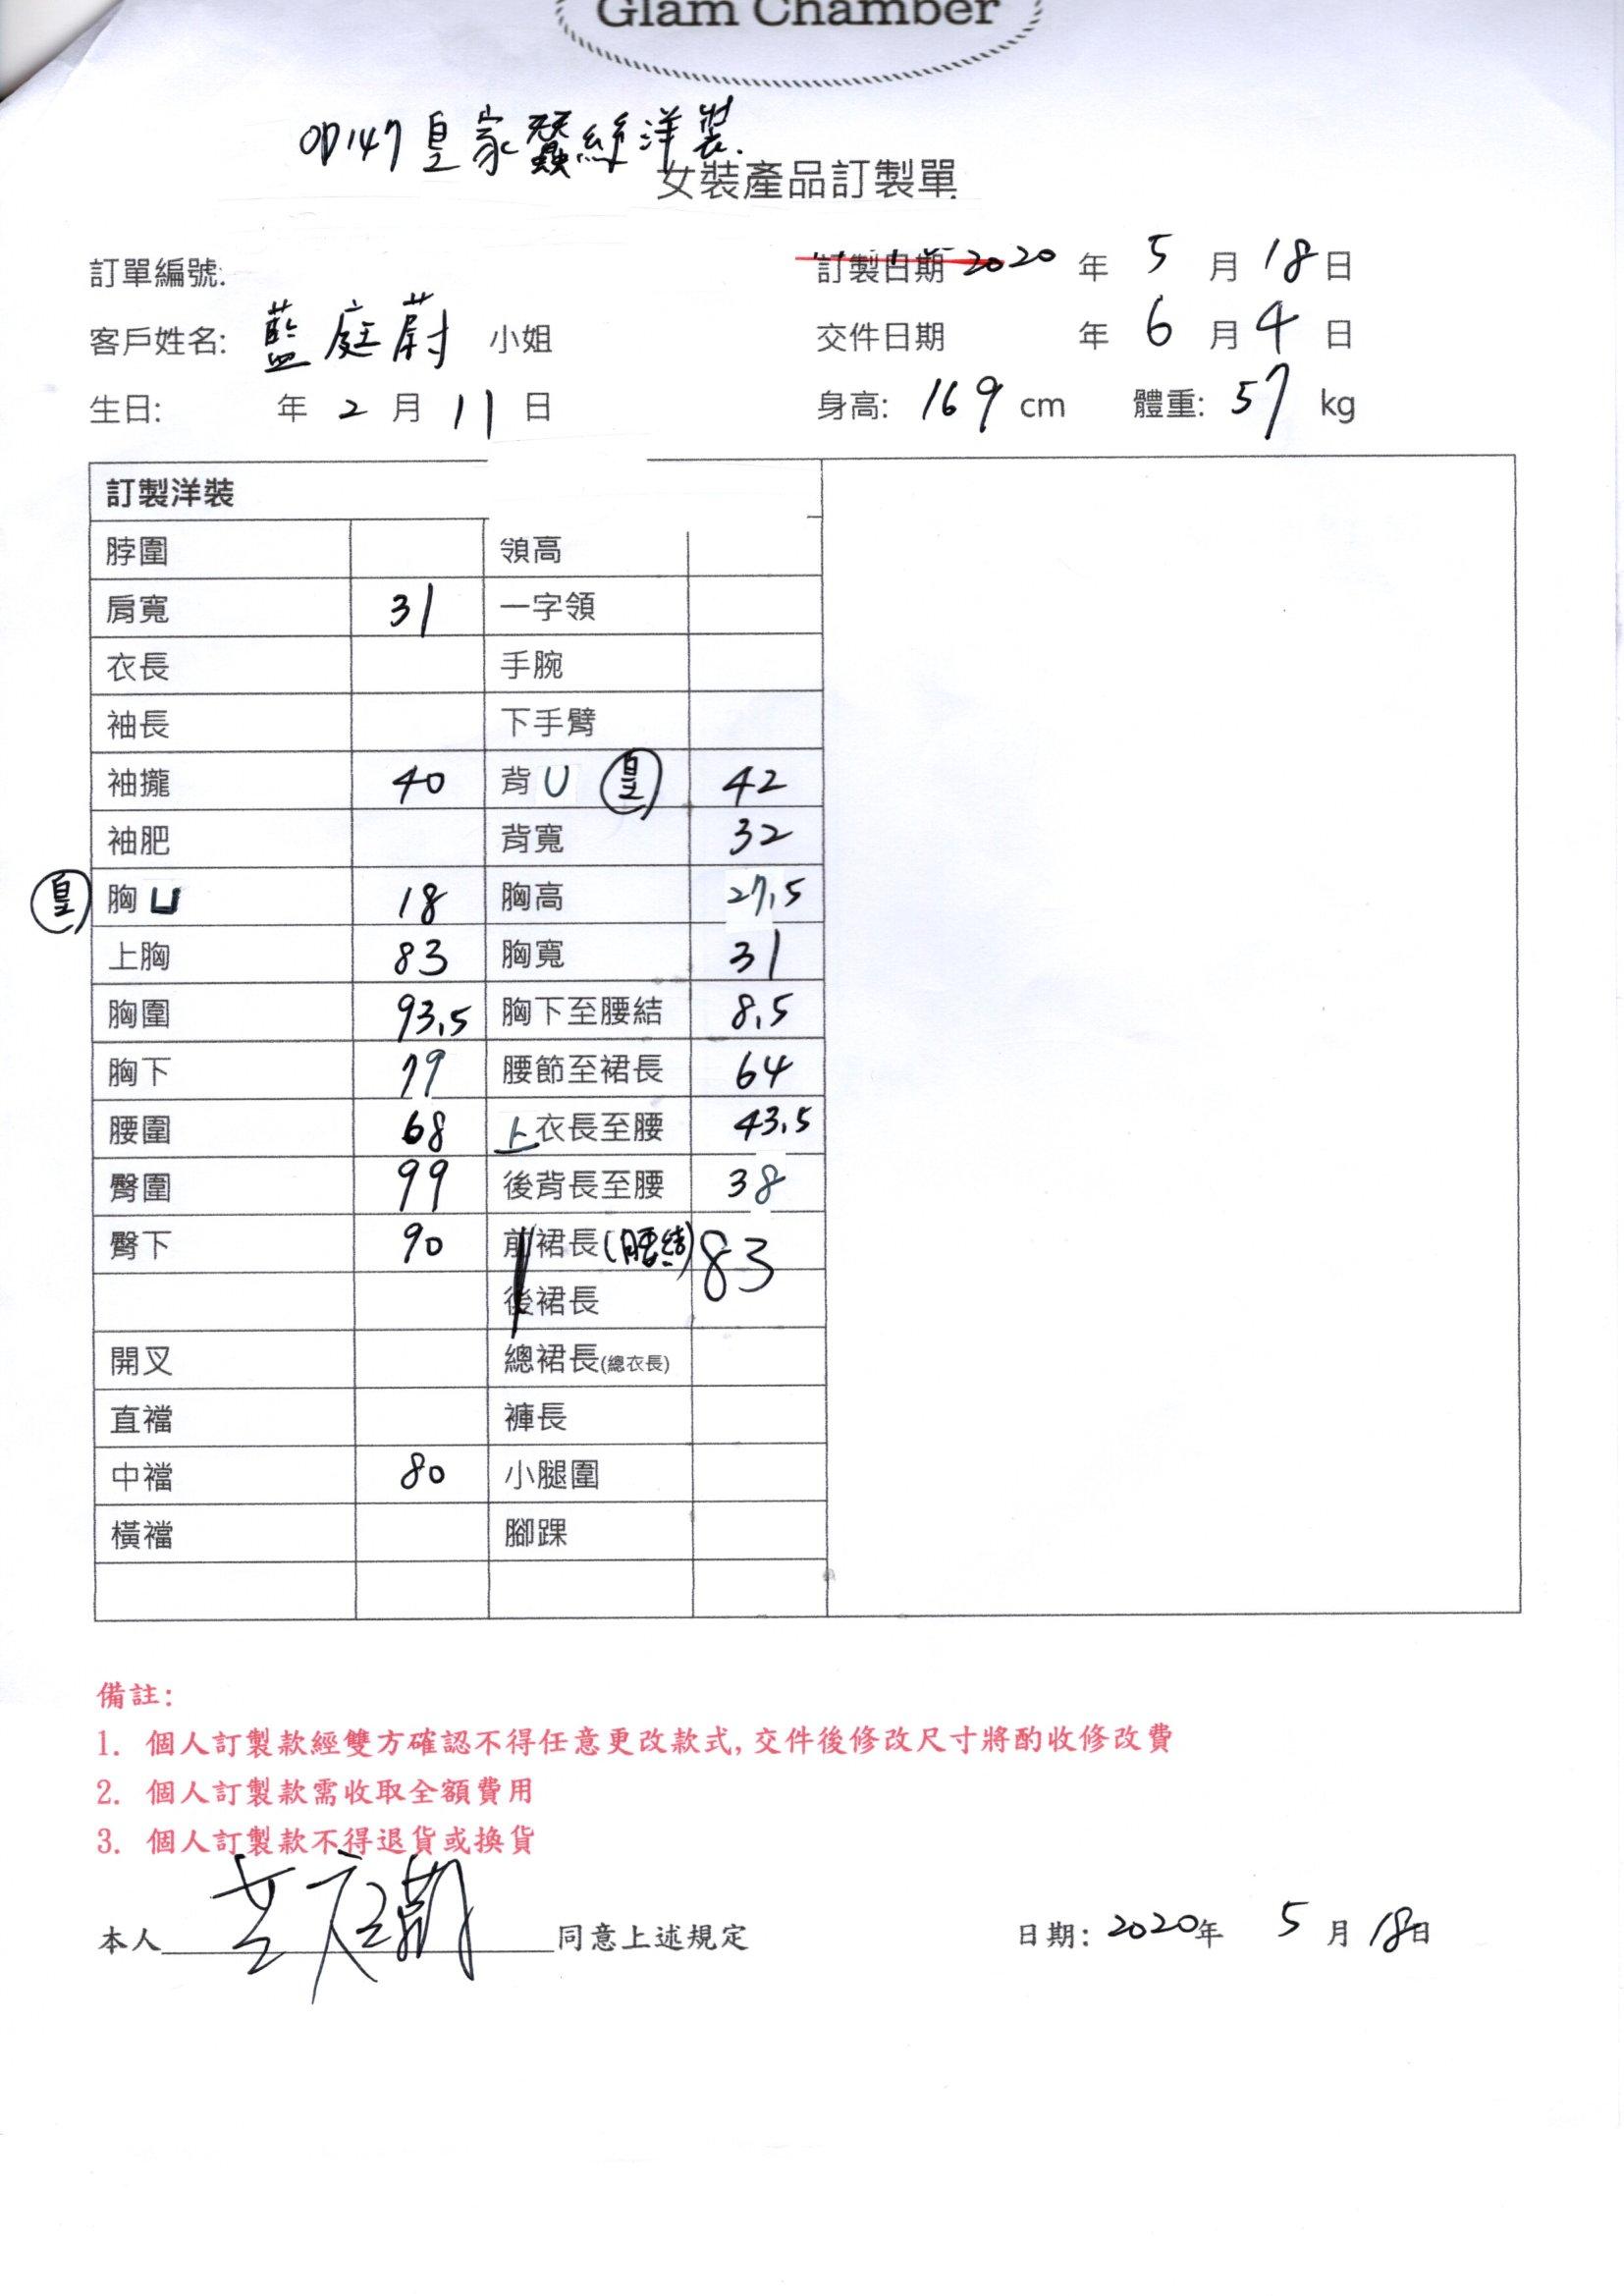 Glam Chamber
OP147皇家蠶絲洋裝.
女裝產品訂製單
訂單編號: 訂製日期 2020 年 5 月 18 日
客戶姓名: 藍庭蔚 小姐 交件日期 年 6 月 4 日
生日: 年 2 月 11 日 身高: 169 cm 體重: 57 kg
訂製洋裝
脖圍 領高
肩寬 31 一字領
衣長 手腕
袖長 下手臂
袖攏 40 背U 皇 42
袖肥 背寬 32
皇 胸U 18 胸高 27.5
上胸 83 胸寬 31
胸圍 93.5 胸下至腰結 8.5
胸下 79 腰節至裙長 64
腰圍 68 上衣長至腰 43.5
臀圍 99 後背長至腰 38
臀下 90 前裙長(腰結) 83
後裙長
開叉 總裙長(總衣長)
直襠 褲長
中襠 80 小腿圍
橫襠 腳踝
備註:
1. 個人訂製款經雙方確認不得任意更改款式,交件後修改尺寸將酌收修改費
2. 個人訂製款需收取全額費用
3. 個人訂製款不得退貨或換貨
本人 同意上述規定 日期: 2020年 5 月 18日